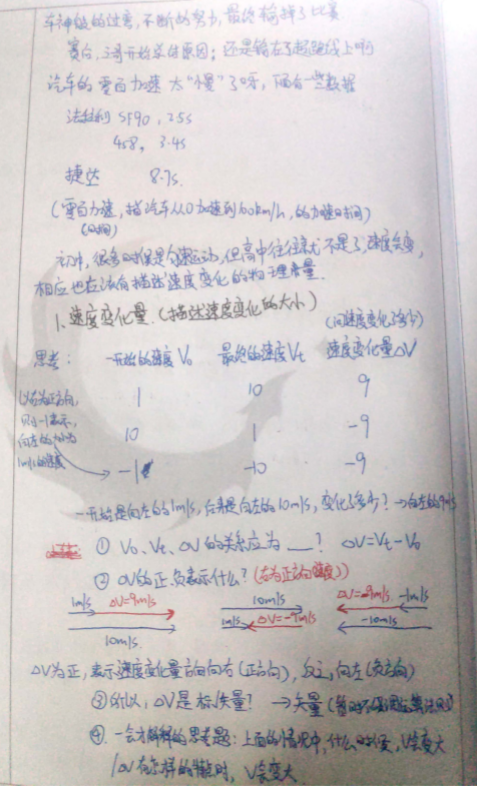 车神般的过弯,不断的努力,最终输掉了比赛
赛后,开始总结原因:还是输在了起跑线上啊
汽车的零百加速太“慢”了呀,附有一些数据
法拉利 SF90, 2.5s
458, 3.4s
捷达 8.7s.
(零百加速,指汽车从0加速到100km/h,的加速时间)
(时间)
初中,很多时候是匀速运动,但高中往往就不是了,速度会变,
相应也应该有描述速度变化的物理量.
1.速度变化量.(描述速度变化的大小)
(问速度变化了多少)
思考: 一开始的速度V₀ 最终的速度Vt 速度变化量ΔV
1 10 9
以右为正方向,
则-1表示,
向左的大小为
1m/s的速度
10 1 -9
-1 -10 -9
一开始是向左的1m/s,后来是向左的10m/s,变化了多少?→向左的9m/s
① V₀、Vt、ΔV的关系应为__? ΔV=Vt-V₀
② ΔV的正负表示什么?(右为正方向)
1m/s ΔV=9m/s 10m/s ΔV=-9m/s -1m/s
10m/s 1m/s ΔV=-9m/s -10m/s
ΔV为正,表示速度变化量方向向右(正方向),反之,向左(负方向)
③所以,ΔV是标/矢量? →矢量
④.一会才解释的思考题:上面的情况中,什么时候,V会变大
/ΔV有怎样的特点时,V会变大